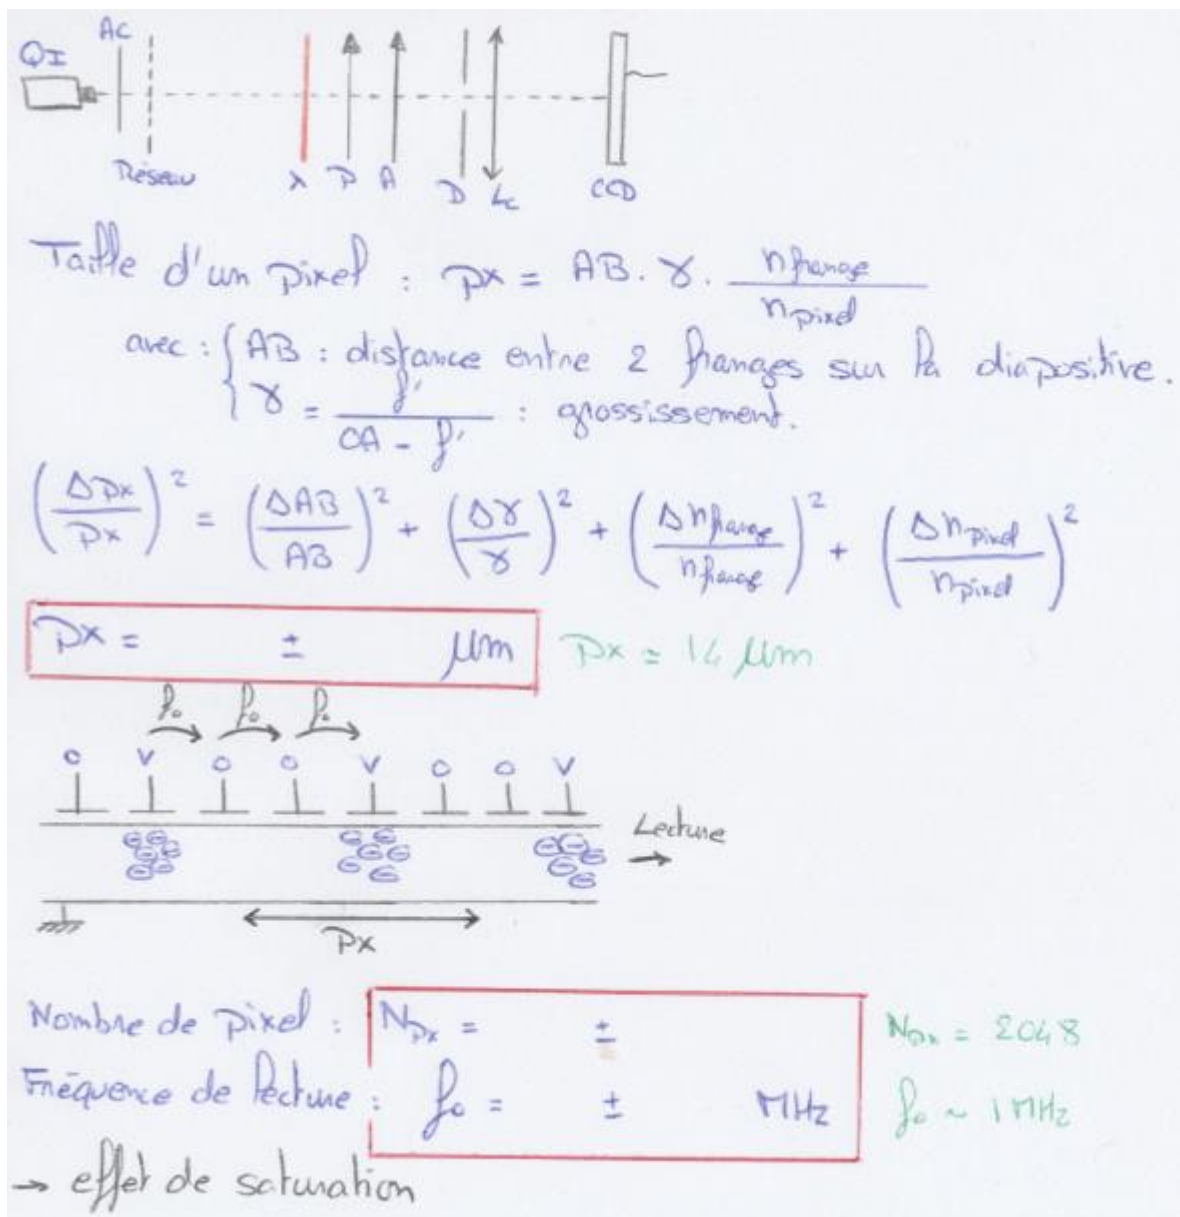 AC
QI
Réseau λ P A D Lc CCD
Taille d'un pixel : Px = AB . γ . n frange / n pixel
avec : { AB : distance entre 2 franges sur la diapositive.
γ = f' / (OA - f') : grossissement.
(ΔPx / Px)² = (ΔAB / AB)² + (Δγ / γ)² + (Δn frange / n frange)² + (Δn pixel / n pixel)²
Px = ± μm Px = 14 μm
f₀ f₀ f₀
O V O O V O O V
Lecture
Px
Nombre de pixel : N Px = ± N Px = 2048
Fréquence de lecture : f₀ = ± MHz f₀ ~ 1 MHz
→ effet de saturation